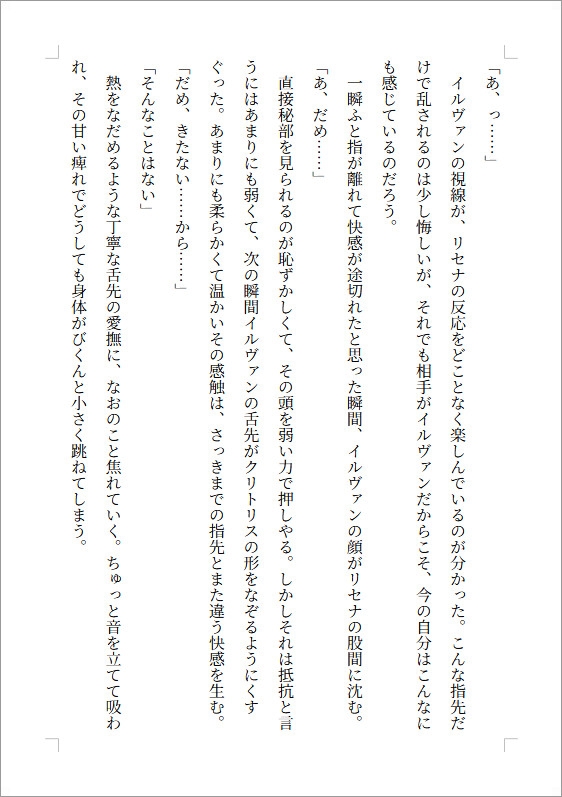 「あ、っ……」
　イルヴァンの視線が、リセナの反応をどことなく楽しんでいるのが分かった。こんな指先だ
けで乱されるのは少し悔しいが、それでも相手がイルヴァンだからこそ、今の自分はこんなに
も感じているのだろう。
　一瞬ふと指が離れて快感が途切れたと思った瞬間、イルヴァンの顔がリセナの股間に沈む。
「あ、だめ……」
　直接秘部を見られるのが恥ずかしくて、その頭を弱い力で押しやる。しかしそれは抵抗と言
うにはあまりにも弱くて、次の瞬間イルヴァンの舌先がクリトリスの形をなぞるようにくす
ぐった。あまりにも柔らかくて温かいその感触は、さっきまでの指先とまた違う快感を生む。
「だめ、きたない……から……」
「そんなことはない」
　熱をなだめるような丁寧な舌先の愛撫に、なおのこと焦れていく。ちゅっと音を立てて吸わ
れ、その甘い痺れでどうしても身体がびくんと小さく跳ねてしまう。